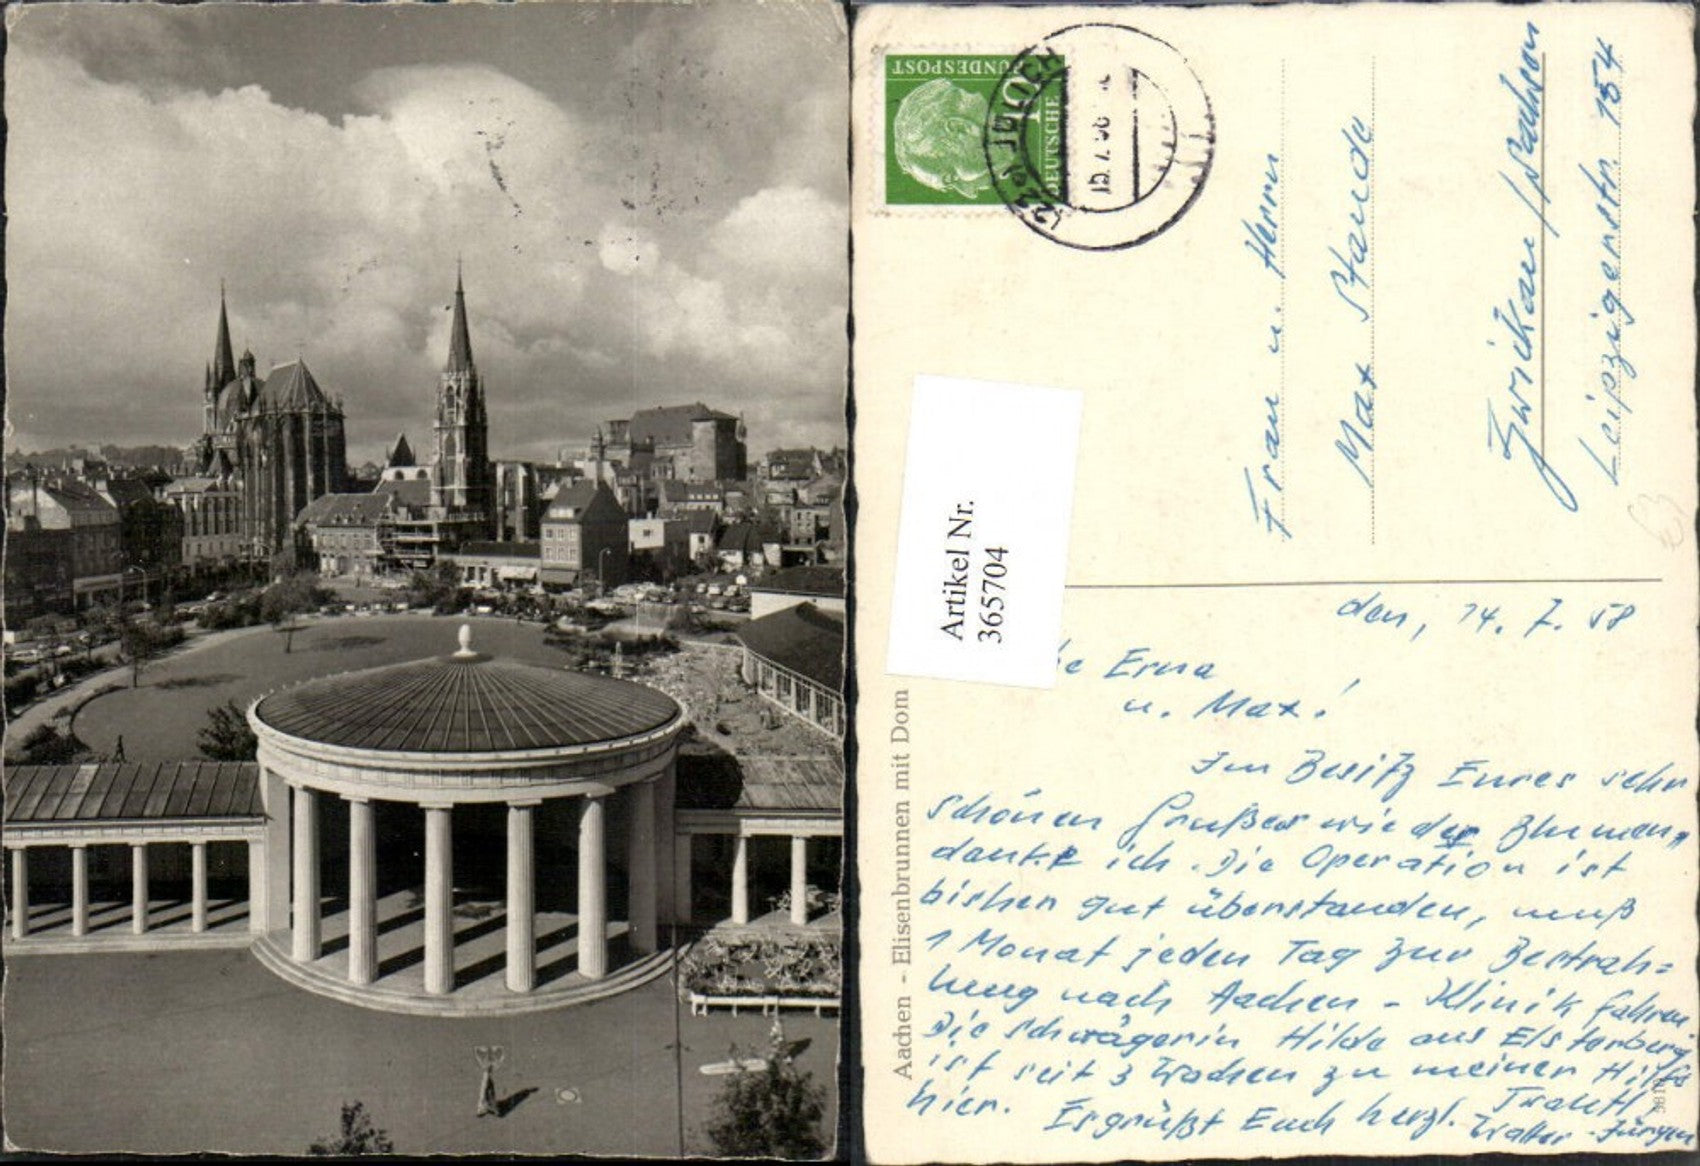 BUNDESPOST
DEUTSCHE
10
(22c) JÜLICH
15.7.58
Frau u. Herrn
Max Staude
Zwickau/Sachsen
Leipzigerstr. 154
Artikel Nr.
365704
Aachen - Elisenbrunnen mit Dom
den, 14. 7. 58
be Erna
u. Max!
Im Besitz Eures sehr
schönen Grußes wie der Blumen,
danke ich. Die Operation ist
bisher gut überstanden, muß
1 Monat jeden Tag zur Bestrah=
lung nach Aachen - Klinik fahren
Die Schwägerin Hilde aus Elsterberg
ist seit 3 Wochen zu meiner Hilfe
hier.
Es grüßt Euch herzl. Trautl,
Walter - Jürgen